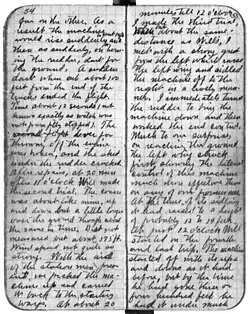 34
gun on the other. As a
result the machine would
rise suddenly to about 10 ft.
and then as suddenly, on turn
ing the rudder, dart for
the ground. A sudden
dart when out about 100
feet from the end of the
tracks ended the flight.
Time about 12 seconds (not
known exactly as watch was
not promptly stopped). The
lever for
throwing off the engine
was broken, and the skid
under the rudder cracked.
After repairs, at 20 min
after 11 o'clock Will made
the second trial. The course
was about like mine, up
and down but a little longer
over the ground though about
the same in time. Dist. not
measured but about 175 ft.
Wind speed not quite so
strong. With the aid
of the station men pres
ent, we picked the mac
hine up and carried
it back to the starting
ways. At about 20
minutes till 12 o'clock
I made the third trial.
When out about the same
distance as Will's, I
met with a strong gust
from the left which raised
the left wing and sidled
the machine off to the
right in a lively man
ner. I immediately turned
the rudder to bring the
machine down and then
worked the end control.
Much to our surprise
on reaching the ground
the left wing struck
first, showing the lateral
control of this machine
much more effective than
on any of our former ones.
At the time of its sidling
it had raised to a height
of probably 12 to 14 feet.
At just 12 o'clock Will
started on the fourth
and last trip. The machine
started off with its ups
and downs as it had
before, but by the time
he had gone three or
four hundred feet he
had it under much